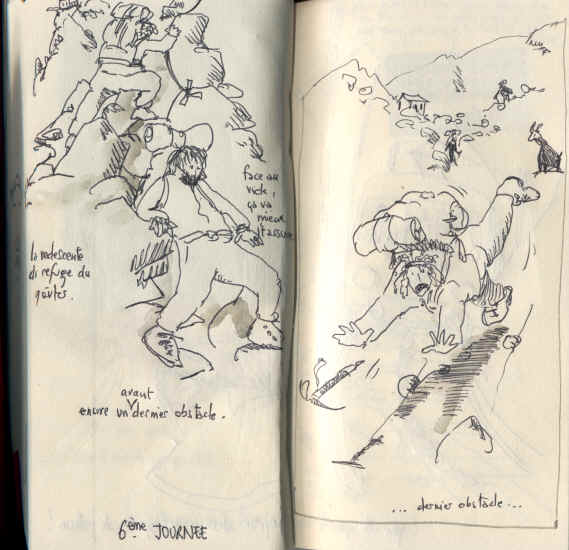 face au
vide,
ça va
mieux
t'assure
la redescente
di refuge du
goûter.
avant
encore un dernier obstacle.
6ème JOURNEE
... dernier obstacle ...